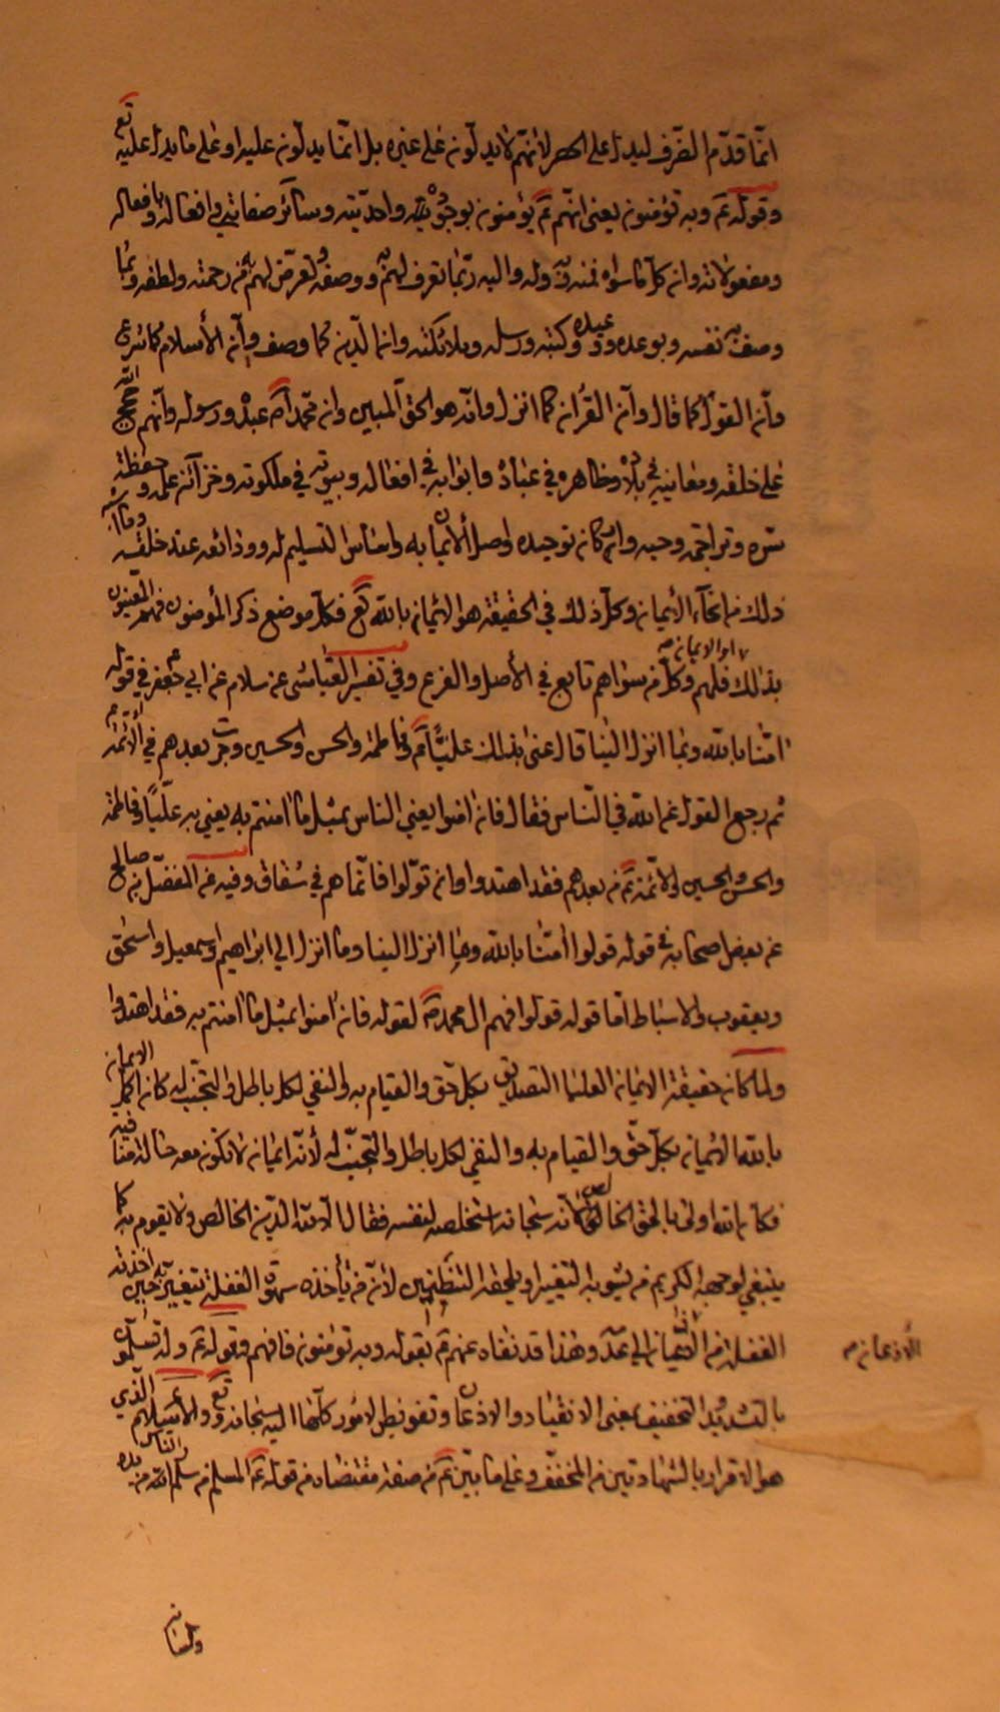 انّما قدّم الظرف ليدل على الحصر لانّهم لا يدلّون على غيره بل انّما يدلّون عليه او على ما يدل عليه تع
وقوله عم وبه تؤمنون يعنى انهم عم يؤمنون بوجوده واحديته وسائر صفاته وافعاله
ومفعولاته وان كل ما سواه فمنه وبه وله واليه وبما تعرف لهم به ووصفه وتعرض لهم من رحمته ولطفه وبما
وصف به نفسه وبوعده ووعيده وكتبه ورسله وملائكته وانما الدّين كما وصف وانّ الأسلام كما شرع
وانّ القول كما قال وانّ القرآن كما انزل وانّه هو الحق المبين وان محمدا ص عبده ورسوله وانهم حجج الله
على خلقه ومعانيه في بلاده ومظاهره في عباده وابوابه في افعاله وبيوته في ملكوته وخزائن علمه وحفظة
سّره وتراجمة وحيه واركان توحيده واصل الايمان به واساس التسليم له وودائعه عند خلقه وما اشبه
ذلك من انحاء الايمان وكلّ ذلك في الحقيقة هو الايمان بالله تع فكلّ موضع ذكر المؤمنون فهم المعنيّون
بذلك او الايمان فلهم وكلّ من سواهم تابع في الأصل والفرع وفي تفسير العياشى عن سلام عن ابي جعفر ع في قوله
امنّا بالله وما انزل الينا قال عنى بذلك عليّا ع وفاطمة والحسن والحسين وجرت بعدهم في الأئمة ع
ثم رجع القول من الله في النّاس فقال فان امنوا يعني الناس بمثل ما امنتم به يعني به عليّا وفاطمة
والحسن والحسين والائمة ع من بعدهم فقد اهتدوا وان تولّوا فانّما هم في شقاق وفيه عن المفضّل بن صالح
عن بعض اصحابه في قوله قولوا امنّا بالله وما انزل الينا وما انزل الي ابراهيم واسمعيل واسحق
ويعقوب والاسباط امّا قوله قولوا فهم ال محمد ص لقوله فان امنوا بمثل ما امنتم به فقد اهتدوا
ولما كان حقيقة الايمان العليا التصديق بكل حق والقيام به والنفي لكل باطل والتجنّب له كان اكمل الايمان
بالله الايمان بكلّ حق والقيام به والنفي لكل باطل والتجنّب له لأنّه ايمان لا تكون معه حالة منافية
فكان الله اولى بالحق الخالص لانّه سبحانه استخلصه لنفسه فقال الا لله الدّين الخالص ولا يقوم به كما
ينبغي لوجهه الكريم من يشوبه التغيير او يلحقه لأنّ من يأخذه سهو الغفلة يتغيّر حين اخذته به
الغفلة من الاذعان الى عدمه وهذا قد نفاه عنهم ع بقوله وبه تؤمنون فافهم وقوله ع وله تسلّمون
بالتشديد التخفيف بمعنى الانقياد والاذعان وتفويض الامور كلّها اليه سبحانه وتع والاسلام الّذي
هو الاقرار بالشهادتين من المخفف وعلى ما بيّن ع من صفة مقتضاه من قوله ع المسلم من سلم الناس من يده
الاذعان صح
ولسانه